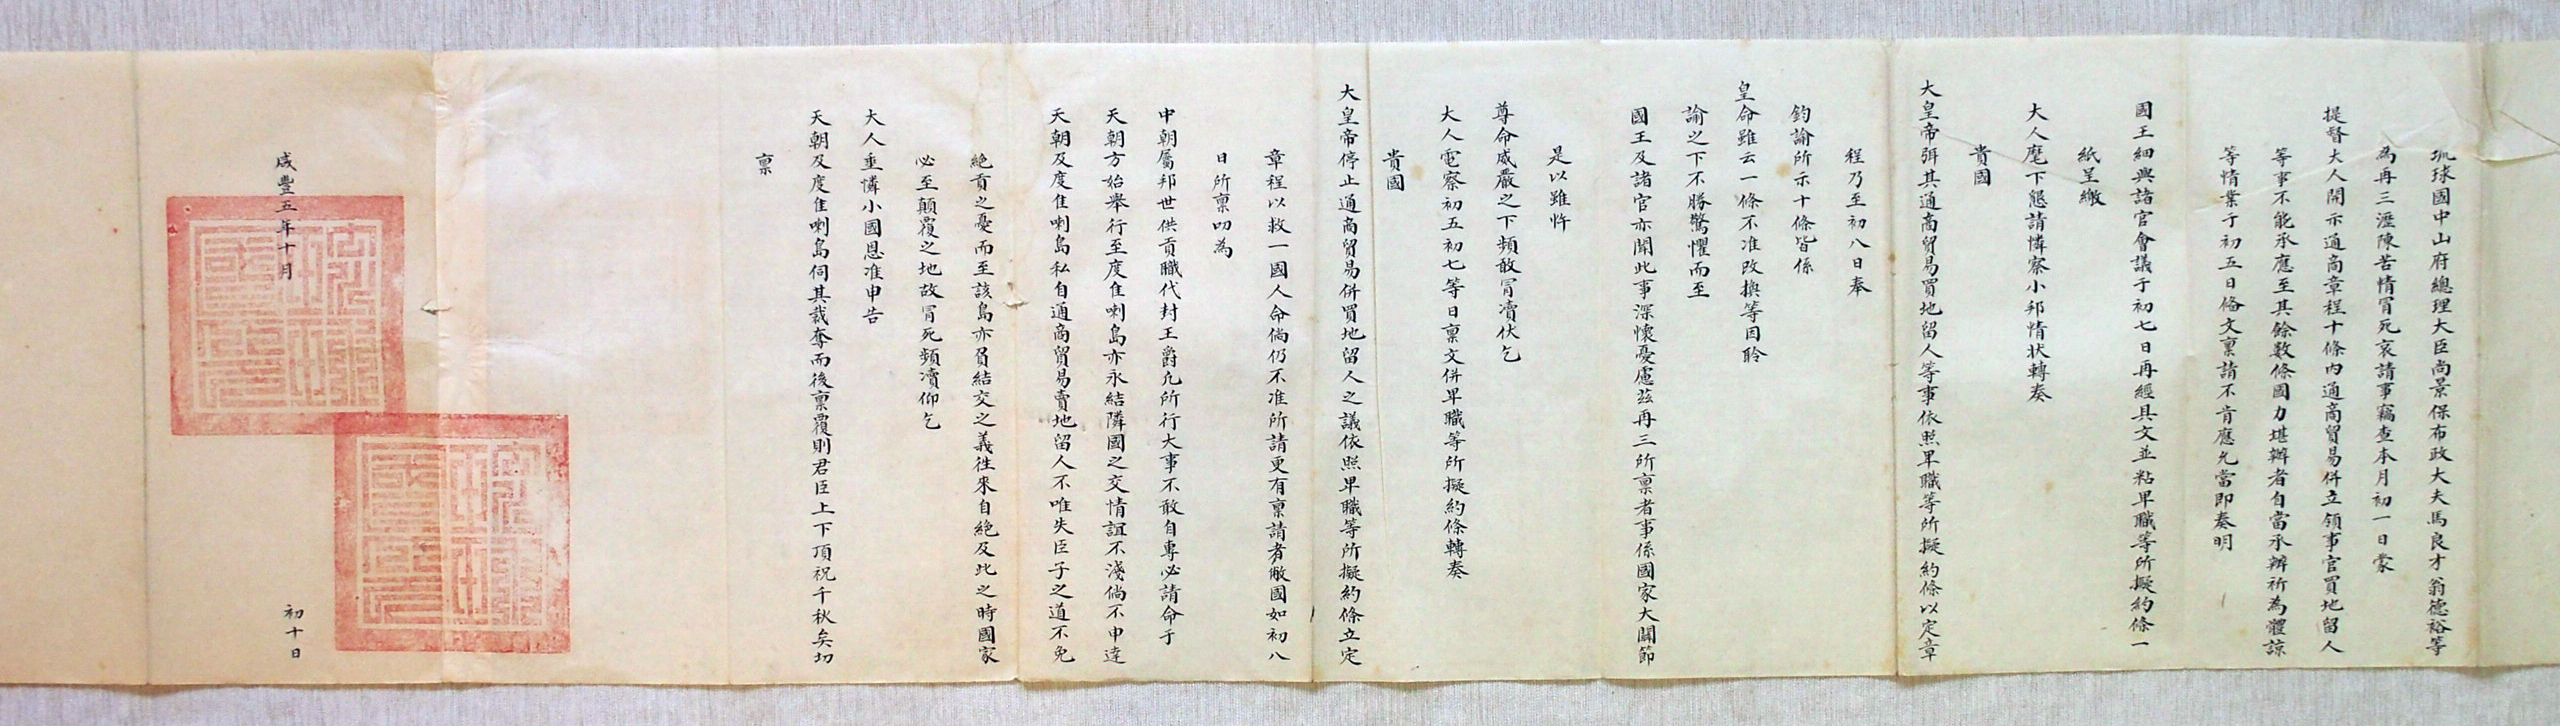 琉球國中山府總理大臣尚景保布政大夫馬良才翁德裕等
為再三瀝陳苦情冒死哀請事竊查本月初一日蒙
提督大人開示通商章程十條內通商貿易併立領事官買地留人
等事不能承應至其餘數條國力堪辦者自當承辦祈為體諒
等情業于初五日俻文稟請不肯應允當即奏明
國王細與諸官會議于初七日再經具文並粘卑職等所擬約條一
紙呈繳
大人麾下懇請憐察小邦情狀轉奏
貴國
大皇帝弭其通商貿易買地留人等事依照卑職等所擬約條以定章
程乃至初八日奉
鈞諭所示十條皆係
皇命雖云一條不准改換等因聆
諭之下不勝驚懼而至
國王及諸官亦聞此事深懷憂慮茲再三所稟者事係國家大關節
是以雖忤
尊命威嚴之下頻敢冒瀆伏乞
大人電察初五初七等日稟文併卑職等所擬約條轉奏
貴國
大皇帝停止通商貿易併買地留人之議依照卑職等所擬約條立定
章程以救一國人命倘仍不准所請更有稟請者敝國如初八
日所稟叨為
中朝屬邦世供貢職代封王爵凢所行大事不敢自專必請命于
天朝方始舉行至度佳喇島亦永結隣國之交情誼不淺倘不申達
天朝及度佳喇島私自通商貿易賣地留人不唯失臣子之道不免
絶貢之憂而至該島亦負結交之義徃來自絶及此之時國家
必至顛覆之地故冒死頻瀆仰乞
大人垂憐小國恩准申告
天朝及度佳喇島伺其裁奪而後稟覆則君臣上下頂祝千秋矣切
稟
咸豐五年十月 初十日